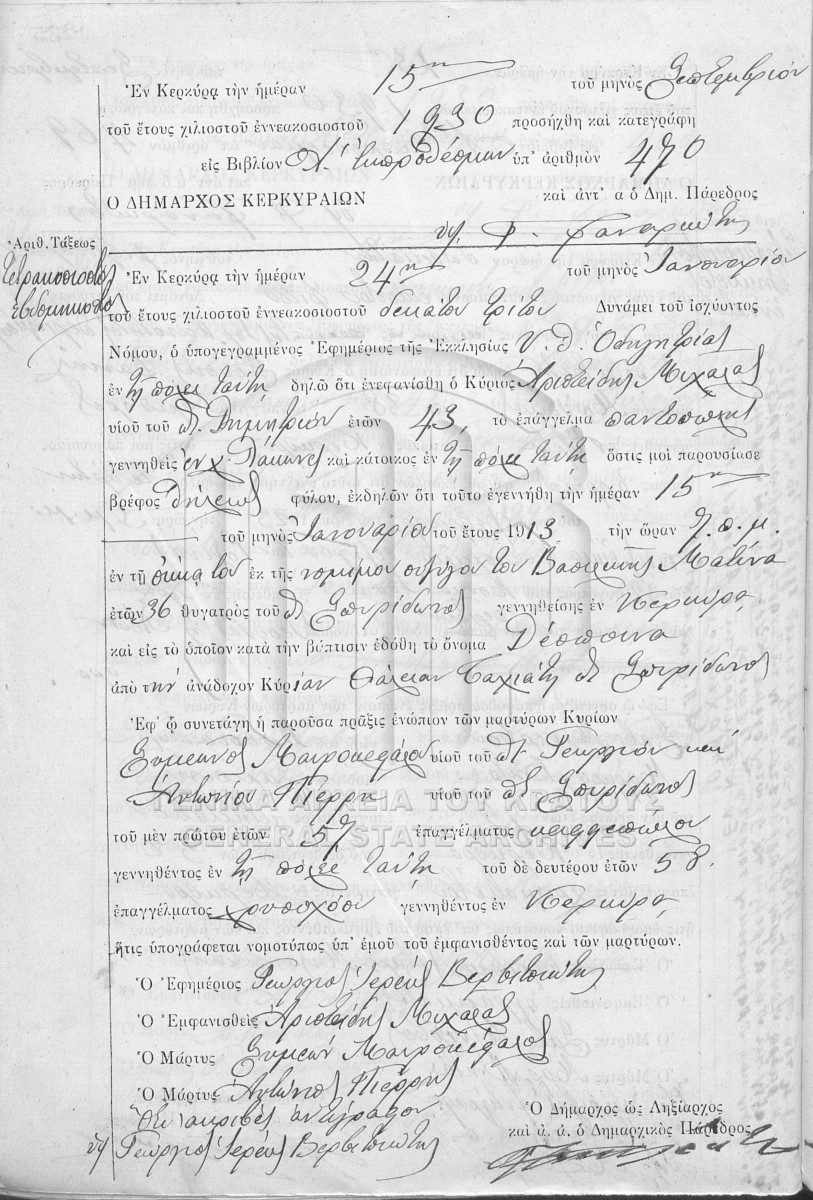 Ἐν Κερκύρᾳ τὴν ἡμέραν 15ην τοῦ μηνὸς Σεπτεμβρίου
τοῦ ἔτους χιλιοστοῦ ἐννεακοσιοστοῦ 1930 προσήχθη καὶ κατεγράφη
εἰς Βιβλίον Λ' Ἐκπροθέσμων ὑπ' ἀριθμὸν 470
Ο ΔΗΜΑΡΧΟΣ ΚΕΡΚΥΡΑΙΩΝ καὶ ἀντ' α ὁ Δημ. Πάρεδρος
Ἀριθ. Τάξεως
Τετρακοσιοστὸς
ἑβδομηκοστὸς
Ἐν Κερκύρᾳ τὴν ἡμέραν 24ην τοῦ μηνὸς Ἰανουαρίου
τοῦ ἔτους χιλιοστοῦ ἐννεακοσιοστοῦ δεκάτου τρίτου Δυνάμει τοῦ ἰσχύοντος
Νόμου, ὁ ὑπογεγραμμένος Ἐφημέριος τῆς Ἐκκλησίας Υ. Θ. Ὁδηγητρίας
ἐν τῇ πόλει ταύτῃ δηλῶ ὅτι ἐνεφανίσθη ὁ Κύριος Ἀριστείδης Μιχαλᾶς
υἱοῦ τοῦ πτ Δημητρίου ἐτῶν 43, τὸ ἐπάγγελμα παντοπώλης
γεννηθεὶς ἐν χ. Λάκωνες καὶ κάτοικος ἐν τῇ πόλει ταύτῃ ὅστις μοὶ παρουσίασε
βρέφος θήλεως φύλου, ἐκδηλῶν ὅτι τοῦτο ἐγεννήθη τὴν ἡμέραν 15ην
τοῦ μηνὸς Ἰανουαρίου τοῦ ἔτους 1913 τὴν ὥραν 7. π. μ.
ἐν τῇ οἰκίᾳ του ἐκ τῆς νομίμου συζύγου του Βασιλικῆς Ματίνα
ἐτῶν 36 θυγατρὸς τοῦ πτ Σπυρίδωνος γεννηθείσης ἐν Κερκύρᾳ
καὶ εἰς τὸ ὁποῖον κατὰ τὴν βάπτισιν ἐδόθη τὸ ὄνομα Δέσποινα
ἀπὸ τὴν ἀνάδοχον Κυρίαν Θάλειαν πτ Σπυρίδωνος
Ἐφ' ᾧ συνετάγη ἡ παροῦσα πρᾶξις ἐνώπιον τῶν μαρτύρων Κυρίων
Συμεῶνος Μαυροκεφάλου υἱοῦ τοῦ πτ Γεωργίου καὶ
Ἀντωνίου Πιέρρη υἱοῦ τοῦ πτ Σπυρίδωνος
ΓΕΝΙΚΑ ΑΡΧΕΙΑ ΤΟΥ ΚΡΑΤΟΥΣ
τοῦ μὲν πρώτου ἐτῶν 57 ἐπαγγέλματος καφφεπώλου
GENERAL STATE ARCHIVES
γεννηθέντος ἐν τῇ πόλει ταύτῃ τοῦ δὲ δευτέρου ἐτῶν 58.
ἐπαγγέλματος χρυσοχόου γεννηθέντος ἐν Κερκύρᾳ
ἥτις ὑπογράφεται νομοτύπως ὑπ' ἐμοῦ τοῦ ἐμφανισθέντος καὶ τῶν μαρτύρων.
Ὁ Ἐφημέριος Γεώργιος Ἱερεὺς Βερβιτσιώτης
Ὁ Ἐμφανισθεὶς Ἀριστείδης Μιχαλᾶς
Ὁ Μάρτυς Συμεὼν Μαυροκέφαλος
Ὁ Μάρτυς Ἀντώνιος Πιέρρης
Ὅτι ἀκριβὲς ἀντίγραφον
Γεώργιος Ἱερεὺς Βερβιτσιώτης
Ὁ Δήμαρχος ὡς Ληξίαρχος
καὶ ἀ. ἀ. ὁ Δημαρχικὸς Πάρεδρος